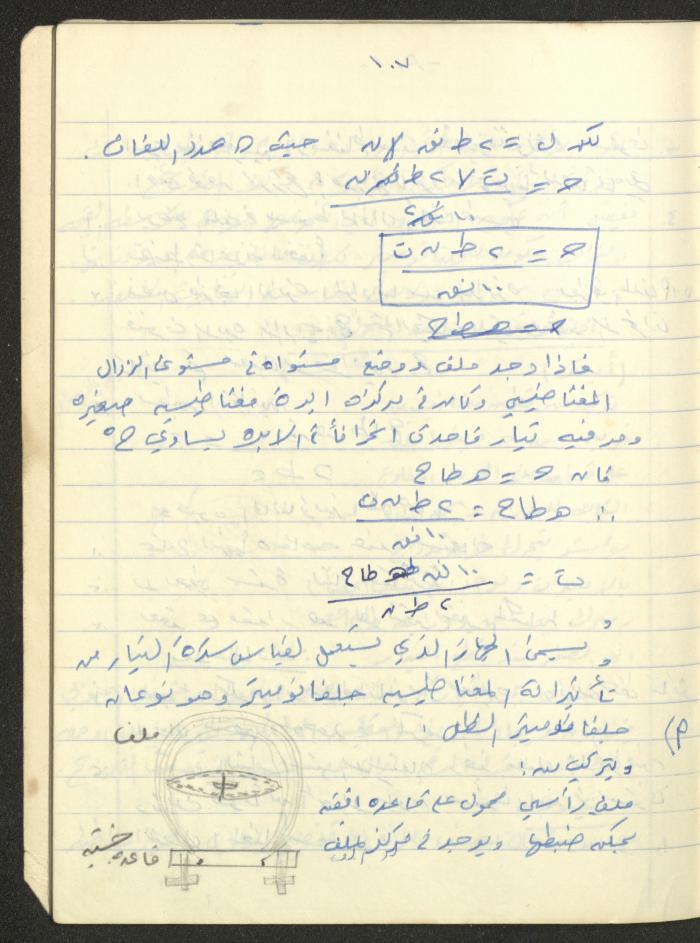 ١٠٧
لكن ل = ٢ ط نق ن حيث ن عدد اللفات .
ح = ت × ٢ ط نق ن
١٠ نق٢
ح = ٢ ط ن ت
١٠ نق
ح = هـ طا ح
فاذا وجد ملف ووضع مستواه في مستوى الزوال
المغناطيسي وكان في مركزه ابرة مغناطيسيه صغيره
ومر فيه تيار فاحدث انحرافاً في الابره يساوي حْ
فان ح = هـ طا ح
∴ هـ طا ح = ٢ ط ن ت
١٠ نق
ت = ١٠ نق هـ طا ح
٢ ط ن
و
ويسمى الجهاز الذي يستعمل لقياس شدة التيار من
تأثيراته المغناطيسيه جلفانوميتر وهو نوعان
أ) جلفانوميتر الظل :
ملف
ويتركب من :
ملف رأسي محمول على قاعده افقيه
يمكن ضبطها ويوجد في مركز الملف
قاعده خشبيه